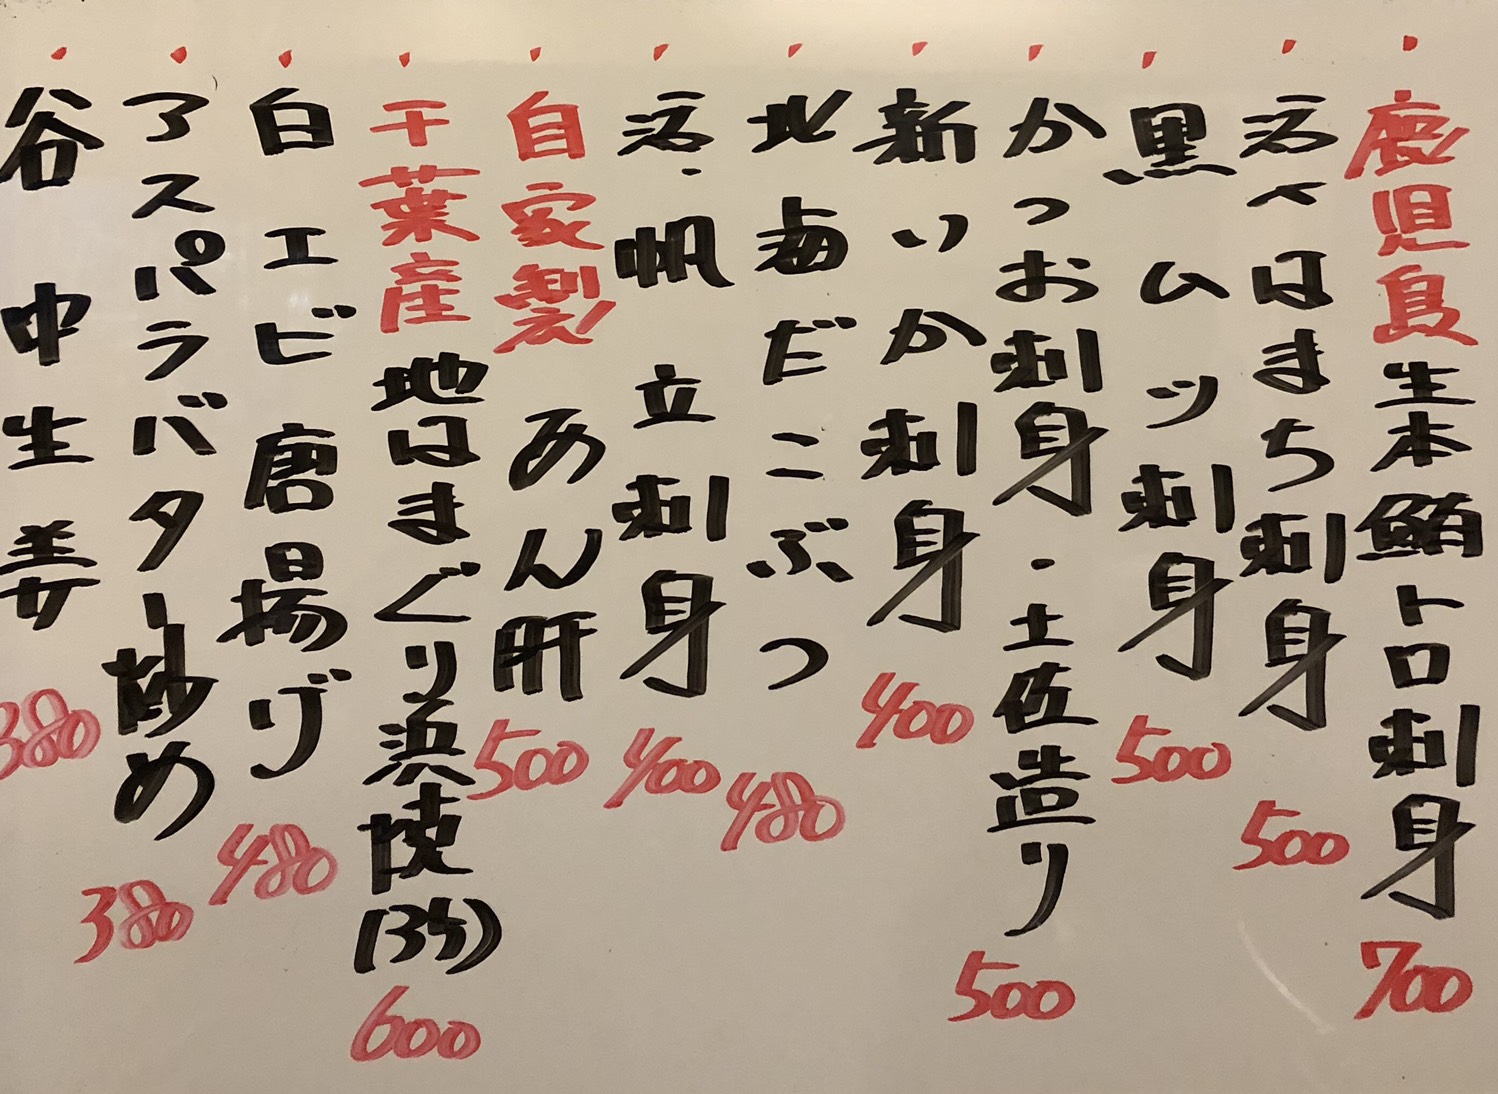 ・鹿児島生本鮪トロ刺身 700
・活〆はまち刺身 500
・黒ムツ刺身 500
・かつお刺身・土佐造り 500
・新いか刺身 400
・北海だこぶつ 480
・活・帆立刺身 400
・自家製あん肝 500
・千葉産地はまぐり浜焼(3ケ) 600
・白エビ唐揚げ 480
・アスパラバター炒め 380
・谷中生姜 380